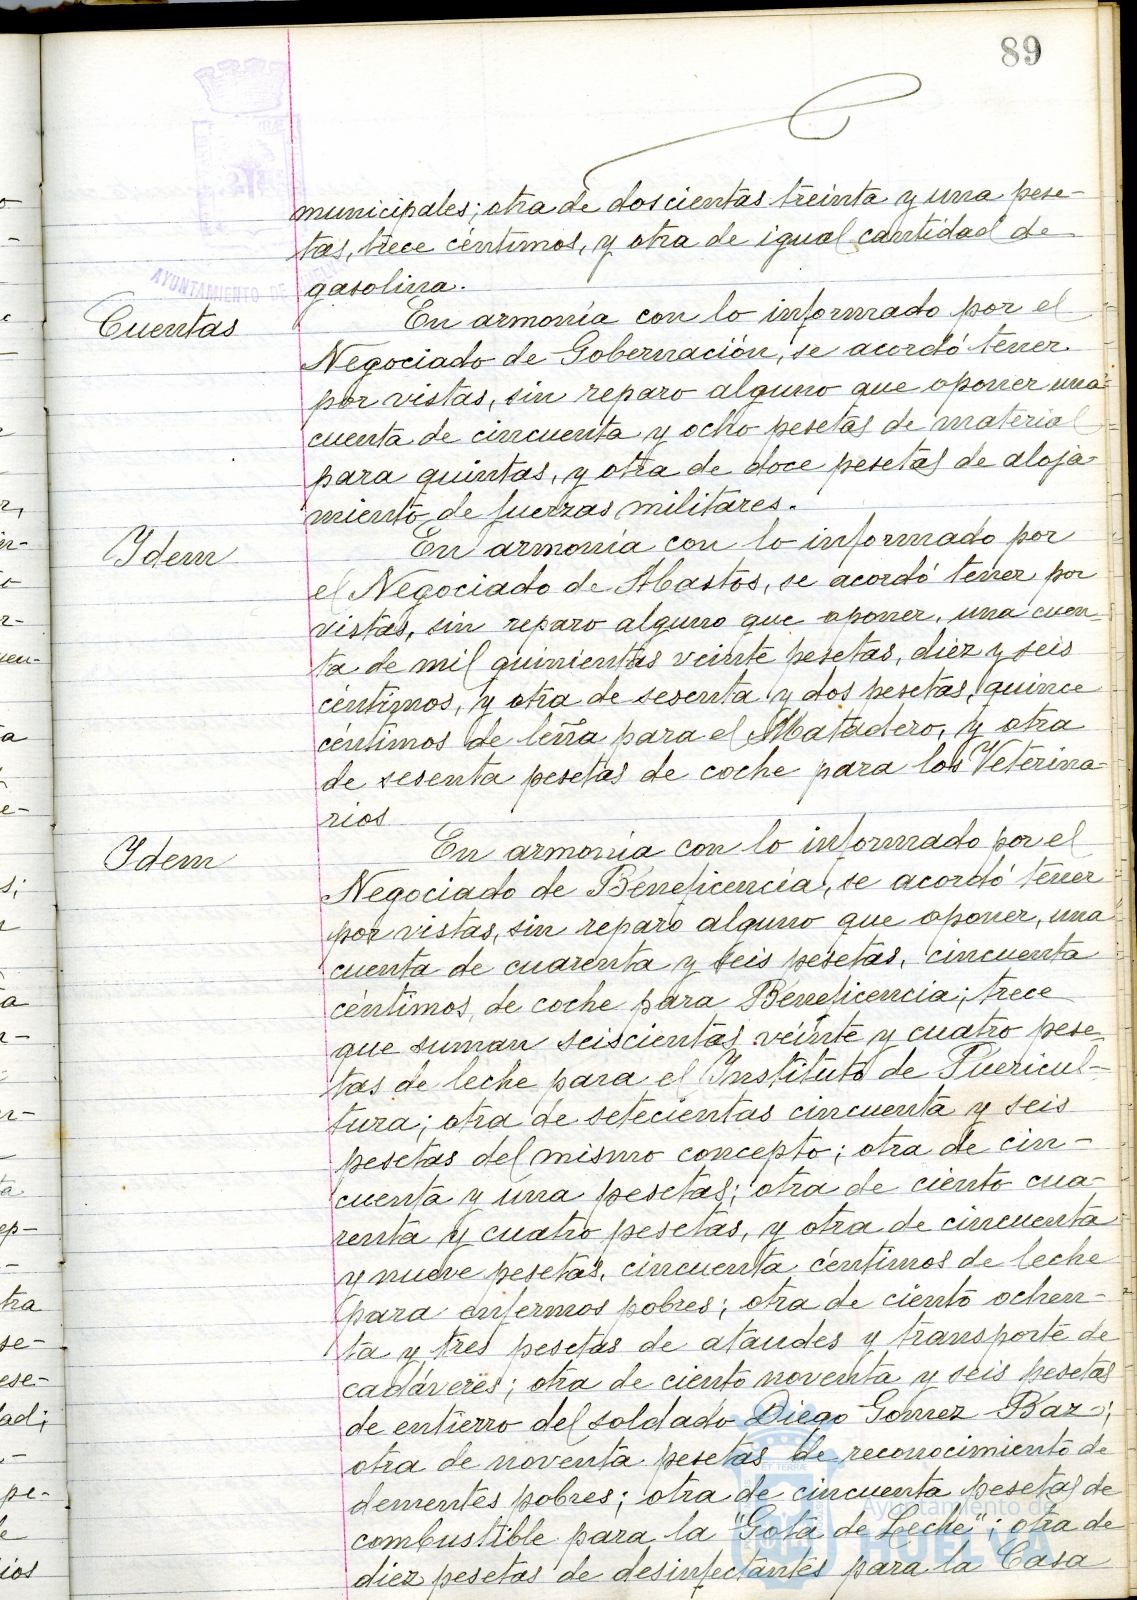 89
municipales; otra de doscientas treinta y una pese-
tas, trece céntimos, y otra de igual cantidad de
gasolina.
AYUNTAMIENTO DE
Cuentas
En armonía con lo informado por el
Negociado de Gobernación, se acordó tener
por vistas, sin reparo alguno que oponer una
cuenta de cincuenta y ocho pesetas de material
para quintas, y otra de doce pesetas de aloja-
miento de fuerzas militares.
Idem
En armonía con lo informado por
el Negociado de Abastos, se acordó tener por
vistas, sin reparo alguno que oponer, una cuen-
ta de mil quinientas veinte pesetas, diez y seis
céntimos, y otra de sesenta y dos pesetas, quince
céntimos de leña para el Matadero, y otra
de sesenta pesetas de coche para los Veterina-
rios
Idem
En armonía con lo informado por el
Negociado de Beneficencia, se acordó tener
por vistas, sin reparo alguno que oponer, una
cuenta de cuarenta y seis pesetas, cincuenta
céntimos, de coche para Beneficencia; trece
que suman seiscientas veinte y cuatro pese
tas de leche para el Instituto de Puericul-
tura; otra de setecientas cincuenta y seis
pesetas del mismo concepto; otra de cin-
cuenta y una pesetas; otra de ciento cua-
renta y cuatro pesetas, y otra de cincuenta
y nueve pesetas, cincuenta céntimos de leche
para enfermos pobres; otra de ciento ochen-
ta y tres pesetas de ataudes y transporte de
cadáveres; otra de ciento noventa y seis pesetas
de entierro del soldado Diego Gómez Baz;
otra de noventa pesetas de reconocimiento de
dementes pobres; otra de cincuenta pesetas de
combustible para la "Gota de Leche"; otra de
diez pesetas de desinfectantes para la Casa
Ayuntamiento de
HUELVA